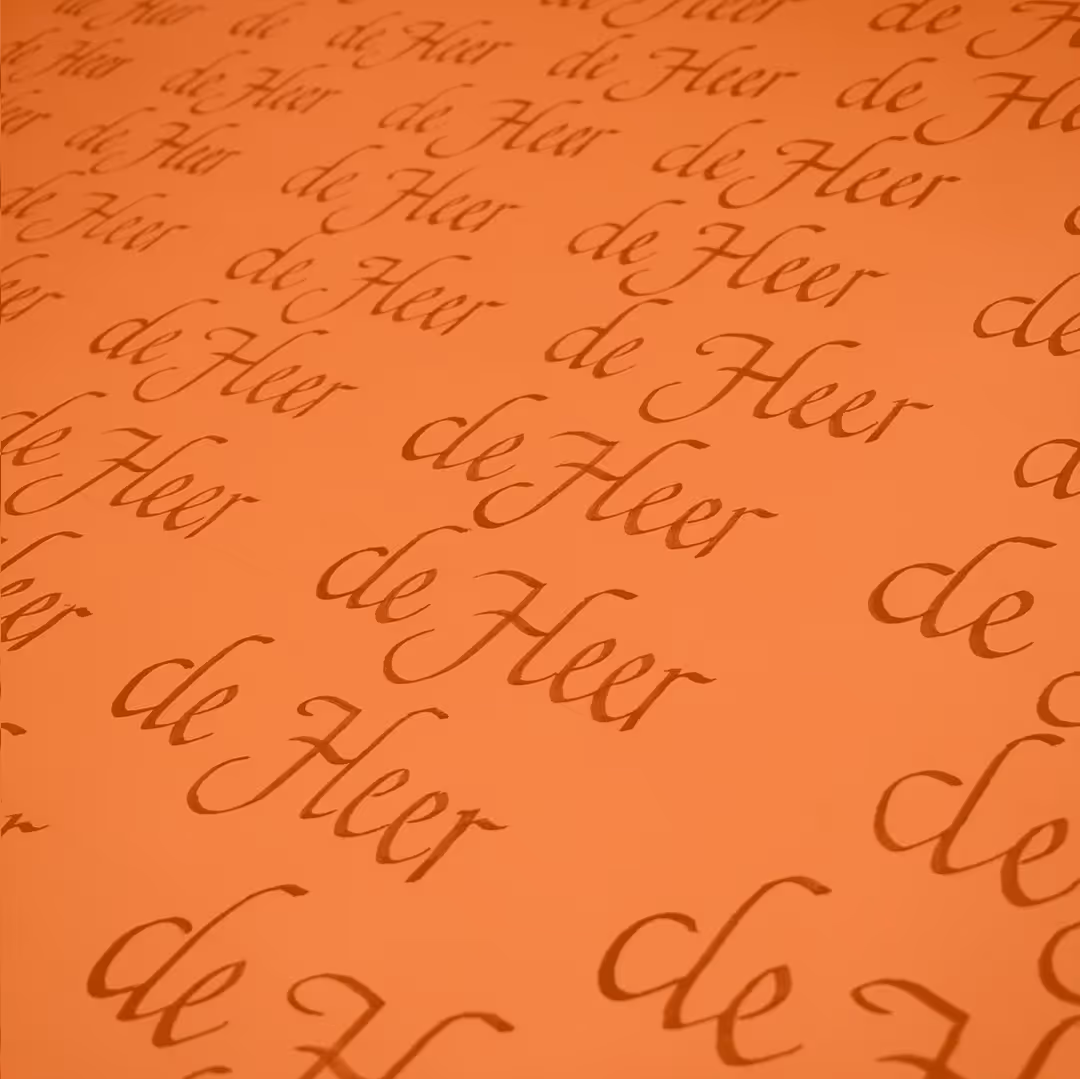 de Heer de de Heer de Heer de H
de Heer de Heer de Heer de He
er de Heer de Heer de Heer
de Heer de Heer de Heer
eer de Heer de
de Heer de Heer
de Heer de Heer
eer de Heer de
de Heer de
r
de H de H